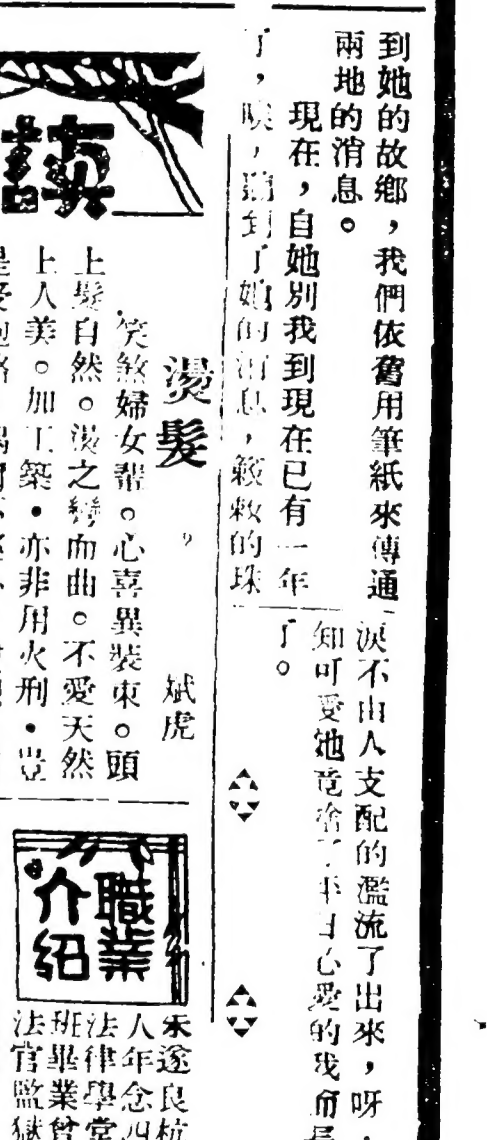 到她的故鄉，我們依舊用筆紙來傳通
兩地的消息。
現在，自她別我到現在已有一年
了，唉，聽到了她的消息，簌簌的珠
淚不由人支配的濫流了出來，呀，
知可愛她竟捨了平日心愛的我而長
了。
燙髮
斌虎
笑煞婦女輩。心喜異裝束。頭
上髮自然。燙之彎而曲。不愛天然
上人美。加工築．亦非用火刑．豈
職業
介紹
朱遂良杭
人年念四
法律學堂
班畢業曾
法官監獄